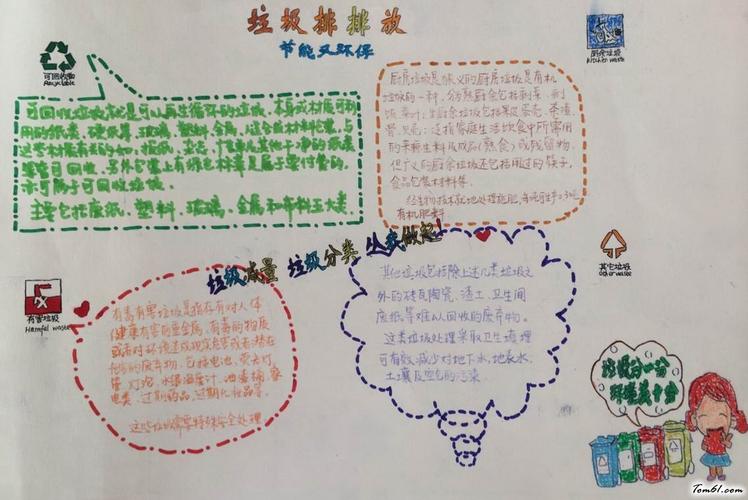 垃圾排排放
节能又环保
可回收物
Recyclable
可回收垃圾就是可以再生循环的垃圾。本身或材质可利
用的纸类、硬纸板、玻璃、塑料、金属、
这些材料
可回收
亦可属于可回收垃圾。
主要包括废纸、塑料、玻璃、金属和布料五大类。
厨余垃圾
Kitchen waste
厨房垃圾是狭义的厨房垃圾是有机
垃圾的一种,分为熟厨余包括剩菜、剩
饭、菜叶;生厨余垃圾包括果皮、蛋壳、茶渣、
骨、贝壳;泛指家庭生活饮食中所需用
的来源生料及成品(熟食)或残留物。
但广义的厨余垃圾还包括用过的筷子,
食品包装材料等。
经生物技术就地处理堆肥,每吨可生产0.3吨
有机肥料。
垃圾减量 垃圾分类 从我做起!
有害垃圾
Harmful waste
有毒有害垃圾是指存有对人体
健康有害的重金属、有毒的物质
或者对环境造成现实危害或者潜在
危害的废弃物。包括电池、荧光灯
管、灯泡、水银温度计、油漆桶、家
电类、过期药品、过期化妆品等。
这些垃圾需要特殊安全处理
其它垃圾
Other waste
其他垃圾包括除上述几类垃圾之
外的砖瓦陶瓷、渣土、卫生间
废纸等难以回收的废弃物。
这类垃圾处理采取卫生填埋
可有效减少对地下水、地表水、
土壤及空气的污染.
垃圾分一分
环境美十分
Tom61.com